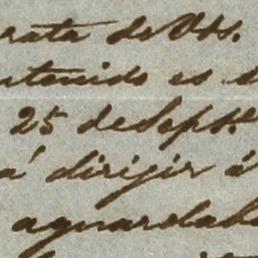 grata de Vds.
contenido es
25 de Sepbre
á dirigir á
aguardaba